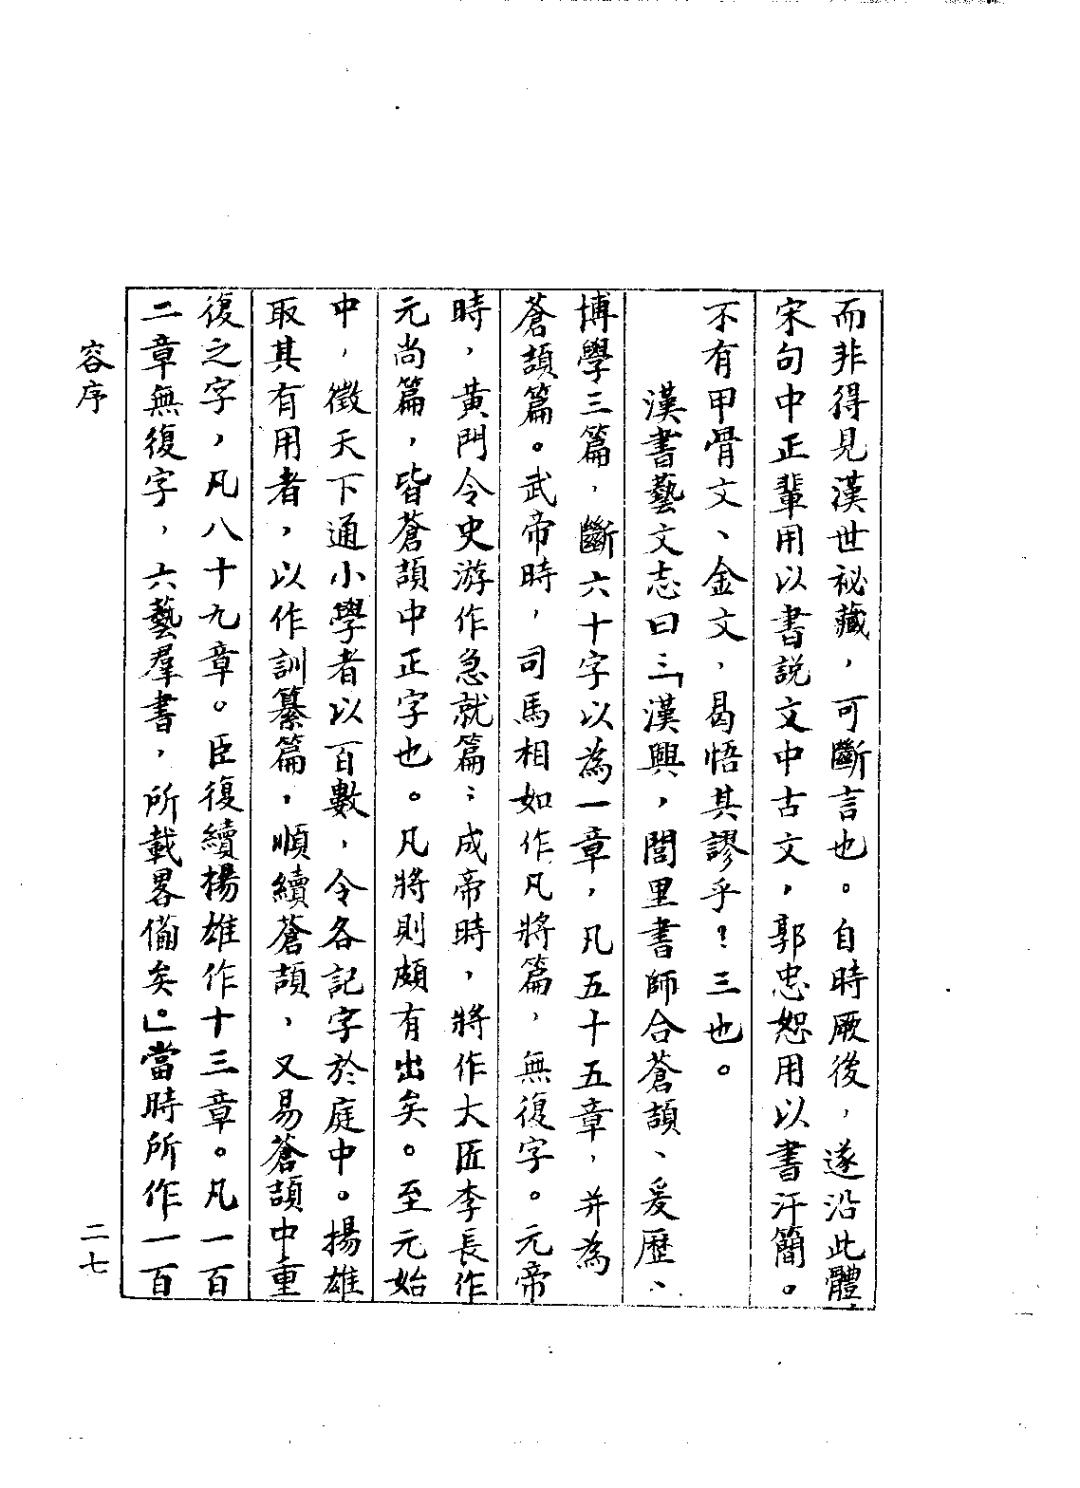 而非得見漢世祕藏，可斷言也。自時厥後，遂沿此體，
宋句中正輩用以書説文中古文，郭忠恕用以書汗簡。
不有甲骨文、金文，曷悟其謬乎？三也。
漢書藝文志曰：「漢興，閭里書師合蒼頡、爰歷、
博學三篇，斷六十字以為一章，凡五十五章，并為
蒼頡篇。武帝時，司馬相如作凡將篇，無復字。元帝
時，黄門令史游作急就篇；成帝時，將作大匠李長作
元尚篇，皆蒼頡中正字也。凡將則頗有出矣。至元始
中，徵天下通小學者以百數，令各記字於庭中。揚雄
取其有用者，以作訓纂篇，順續蒼頡，又易蒼頡中重
復之字，凡八十九章。臣復續楊雄作十三章。凡一百
二章無復字，六藝羣書，所載畧備矣。」當時所作一百
容序
二七